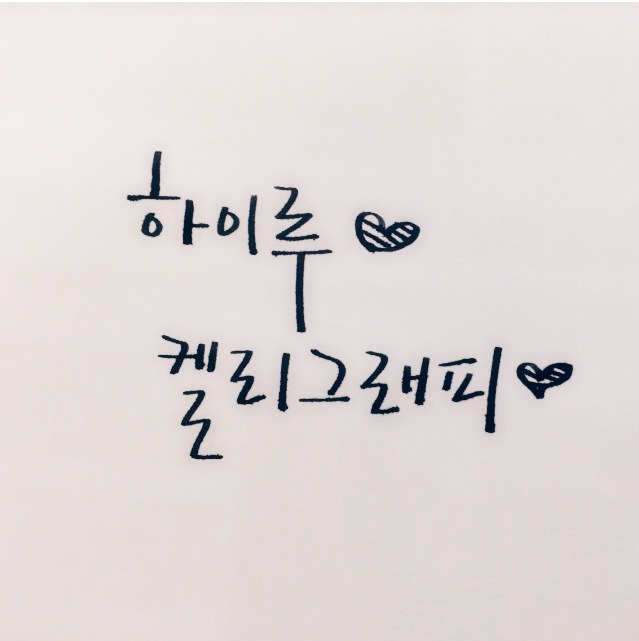 하이루 ♥
켈리그래피 ♥